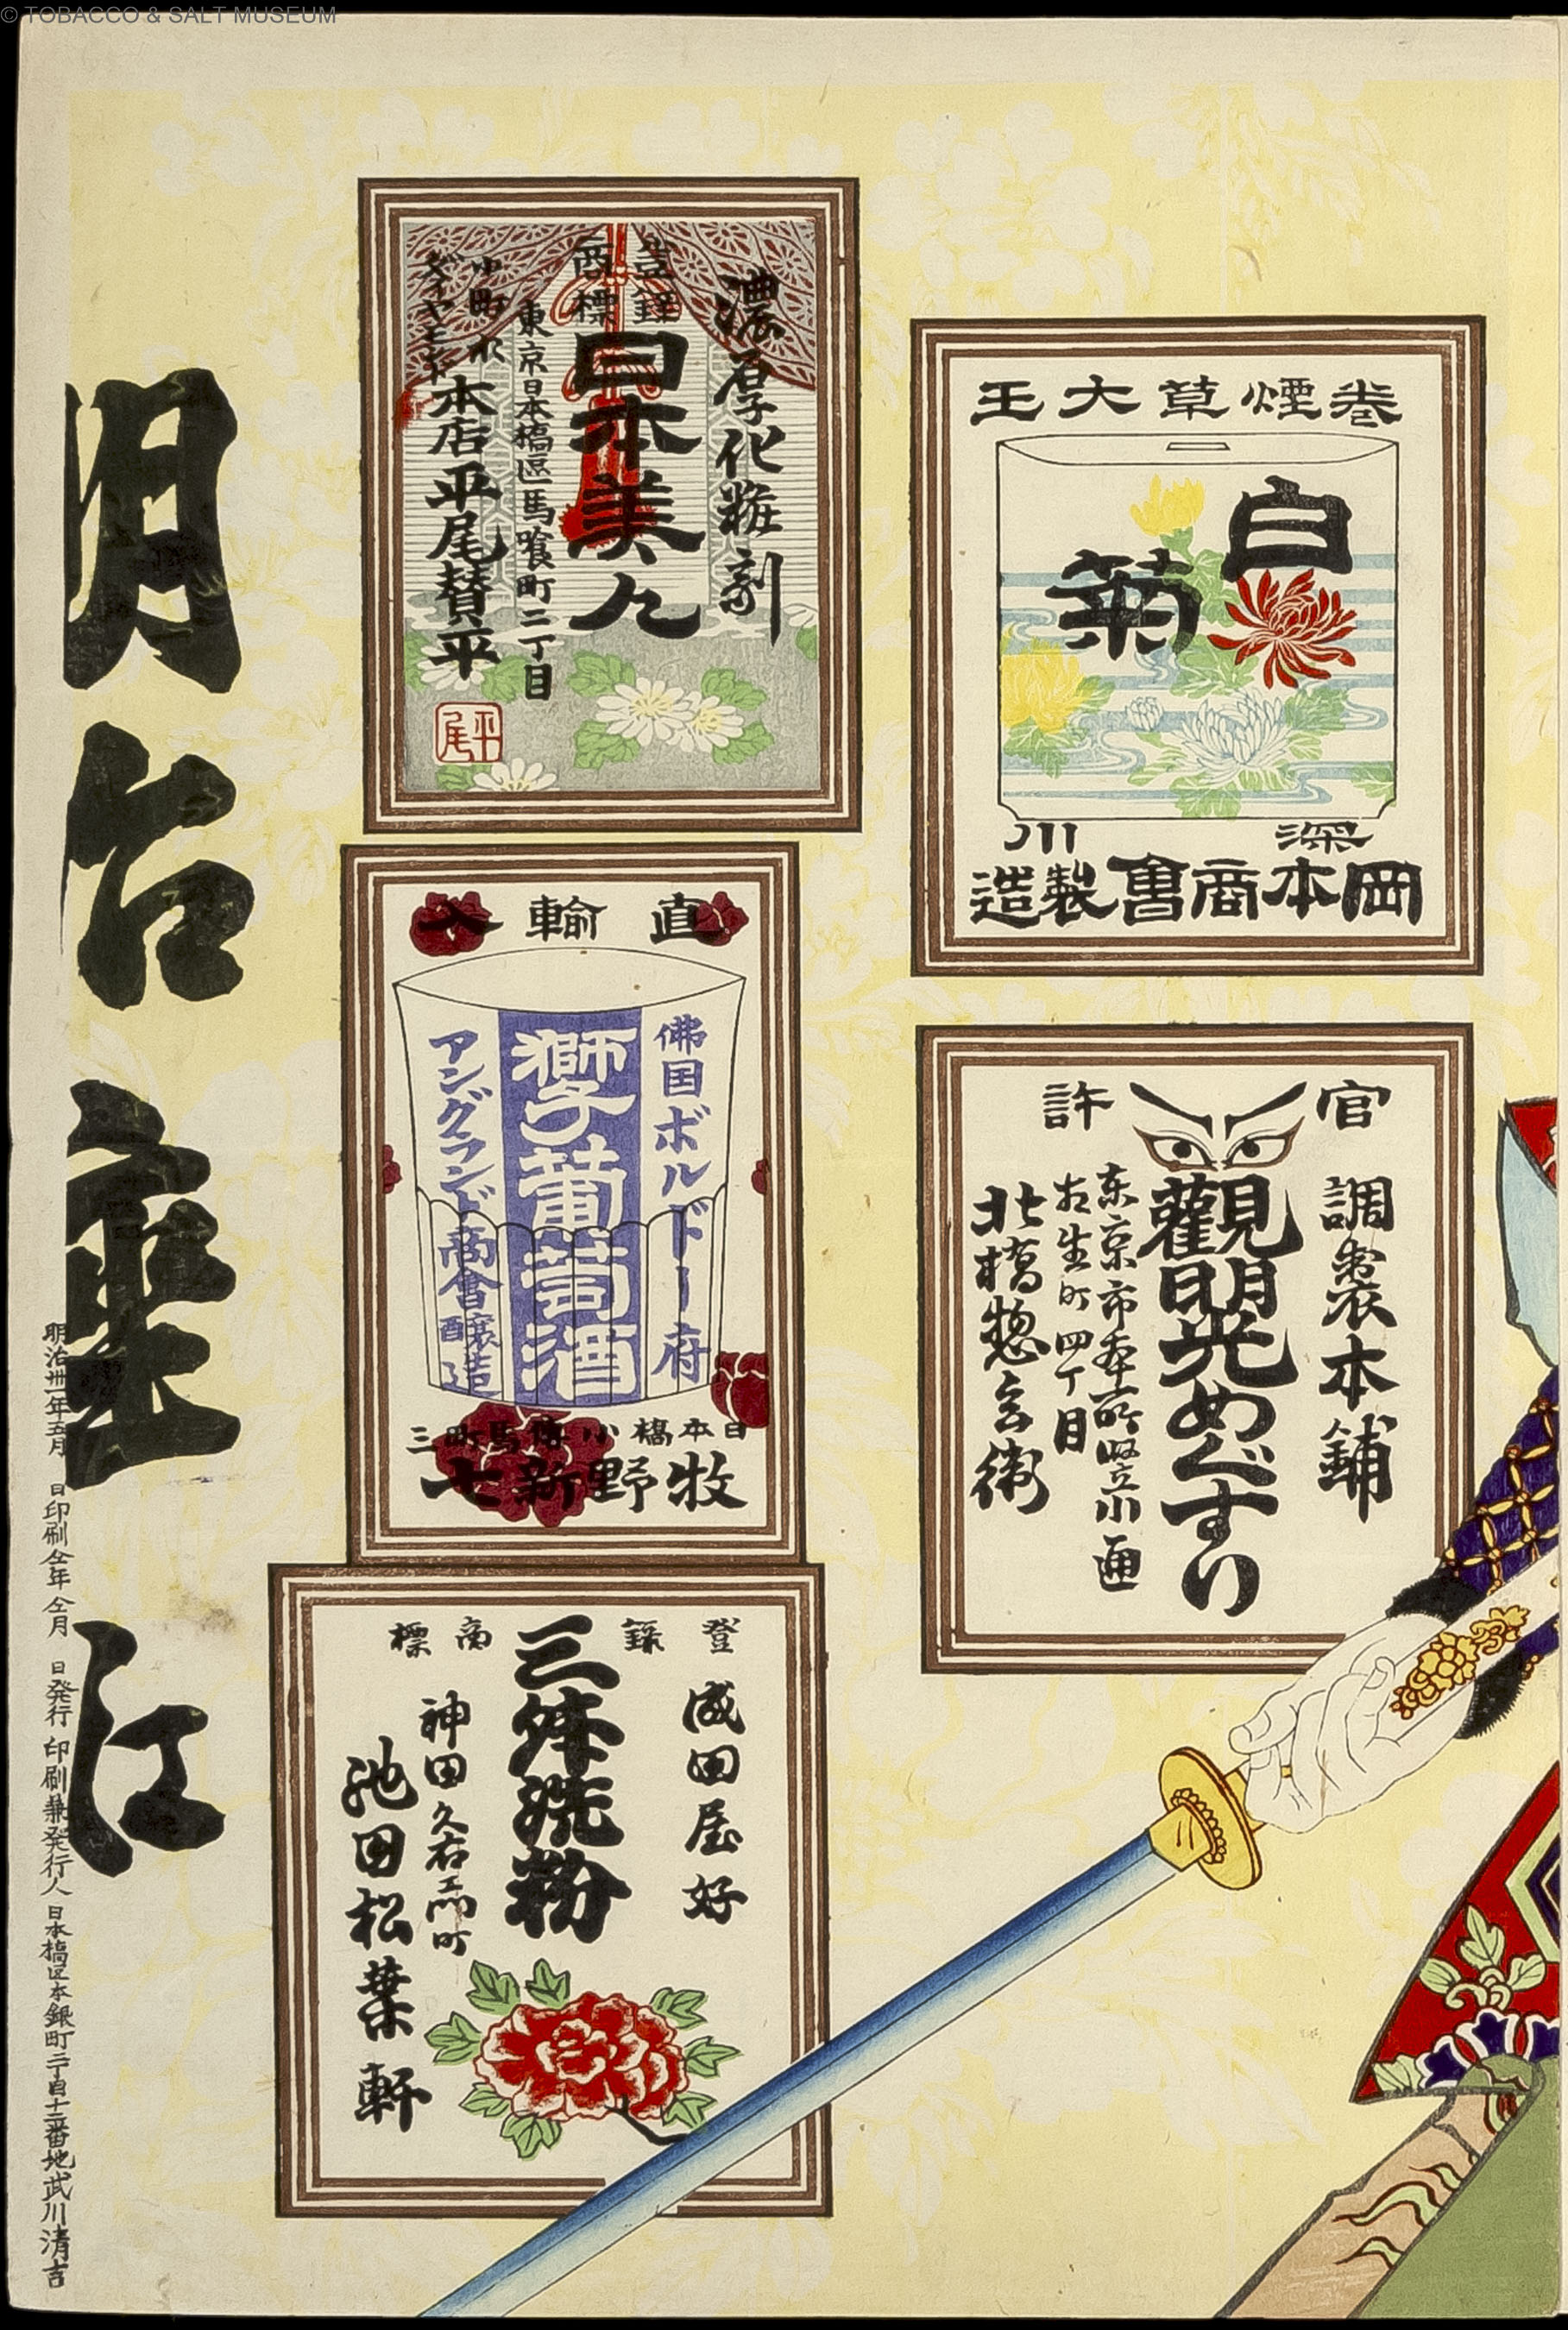 © TOBACCO & SALT MUSEUM
巻煙草大王
白
菊
深川
岡本商會製造
官許
調製本舗
觀明光めぐすり
东京市本所区
相生町四丁目
北橋惣兵衛
濃厚化粧剤
登錄
商標
日本美人
東京日本橋區馬喰町二丁目
小町水
ダイヤモンド
本店平尾賛平
平尾
直輸入
佛国ボルドー府
獅子葡萄酒
アングランド商會醸造
日本橋小傳馬町三
牧野新七
登録商標
成田屋好
三体洗粉
神田久右エ門町
池田松葉軒
明治座
明治卅一年五月　日印刷仝年仝月　日発行 印刷兼発行人 日本橋区本銀町二丁目十二番地武川清吉